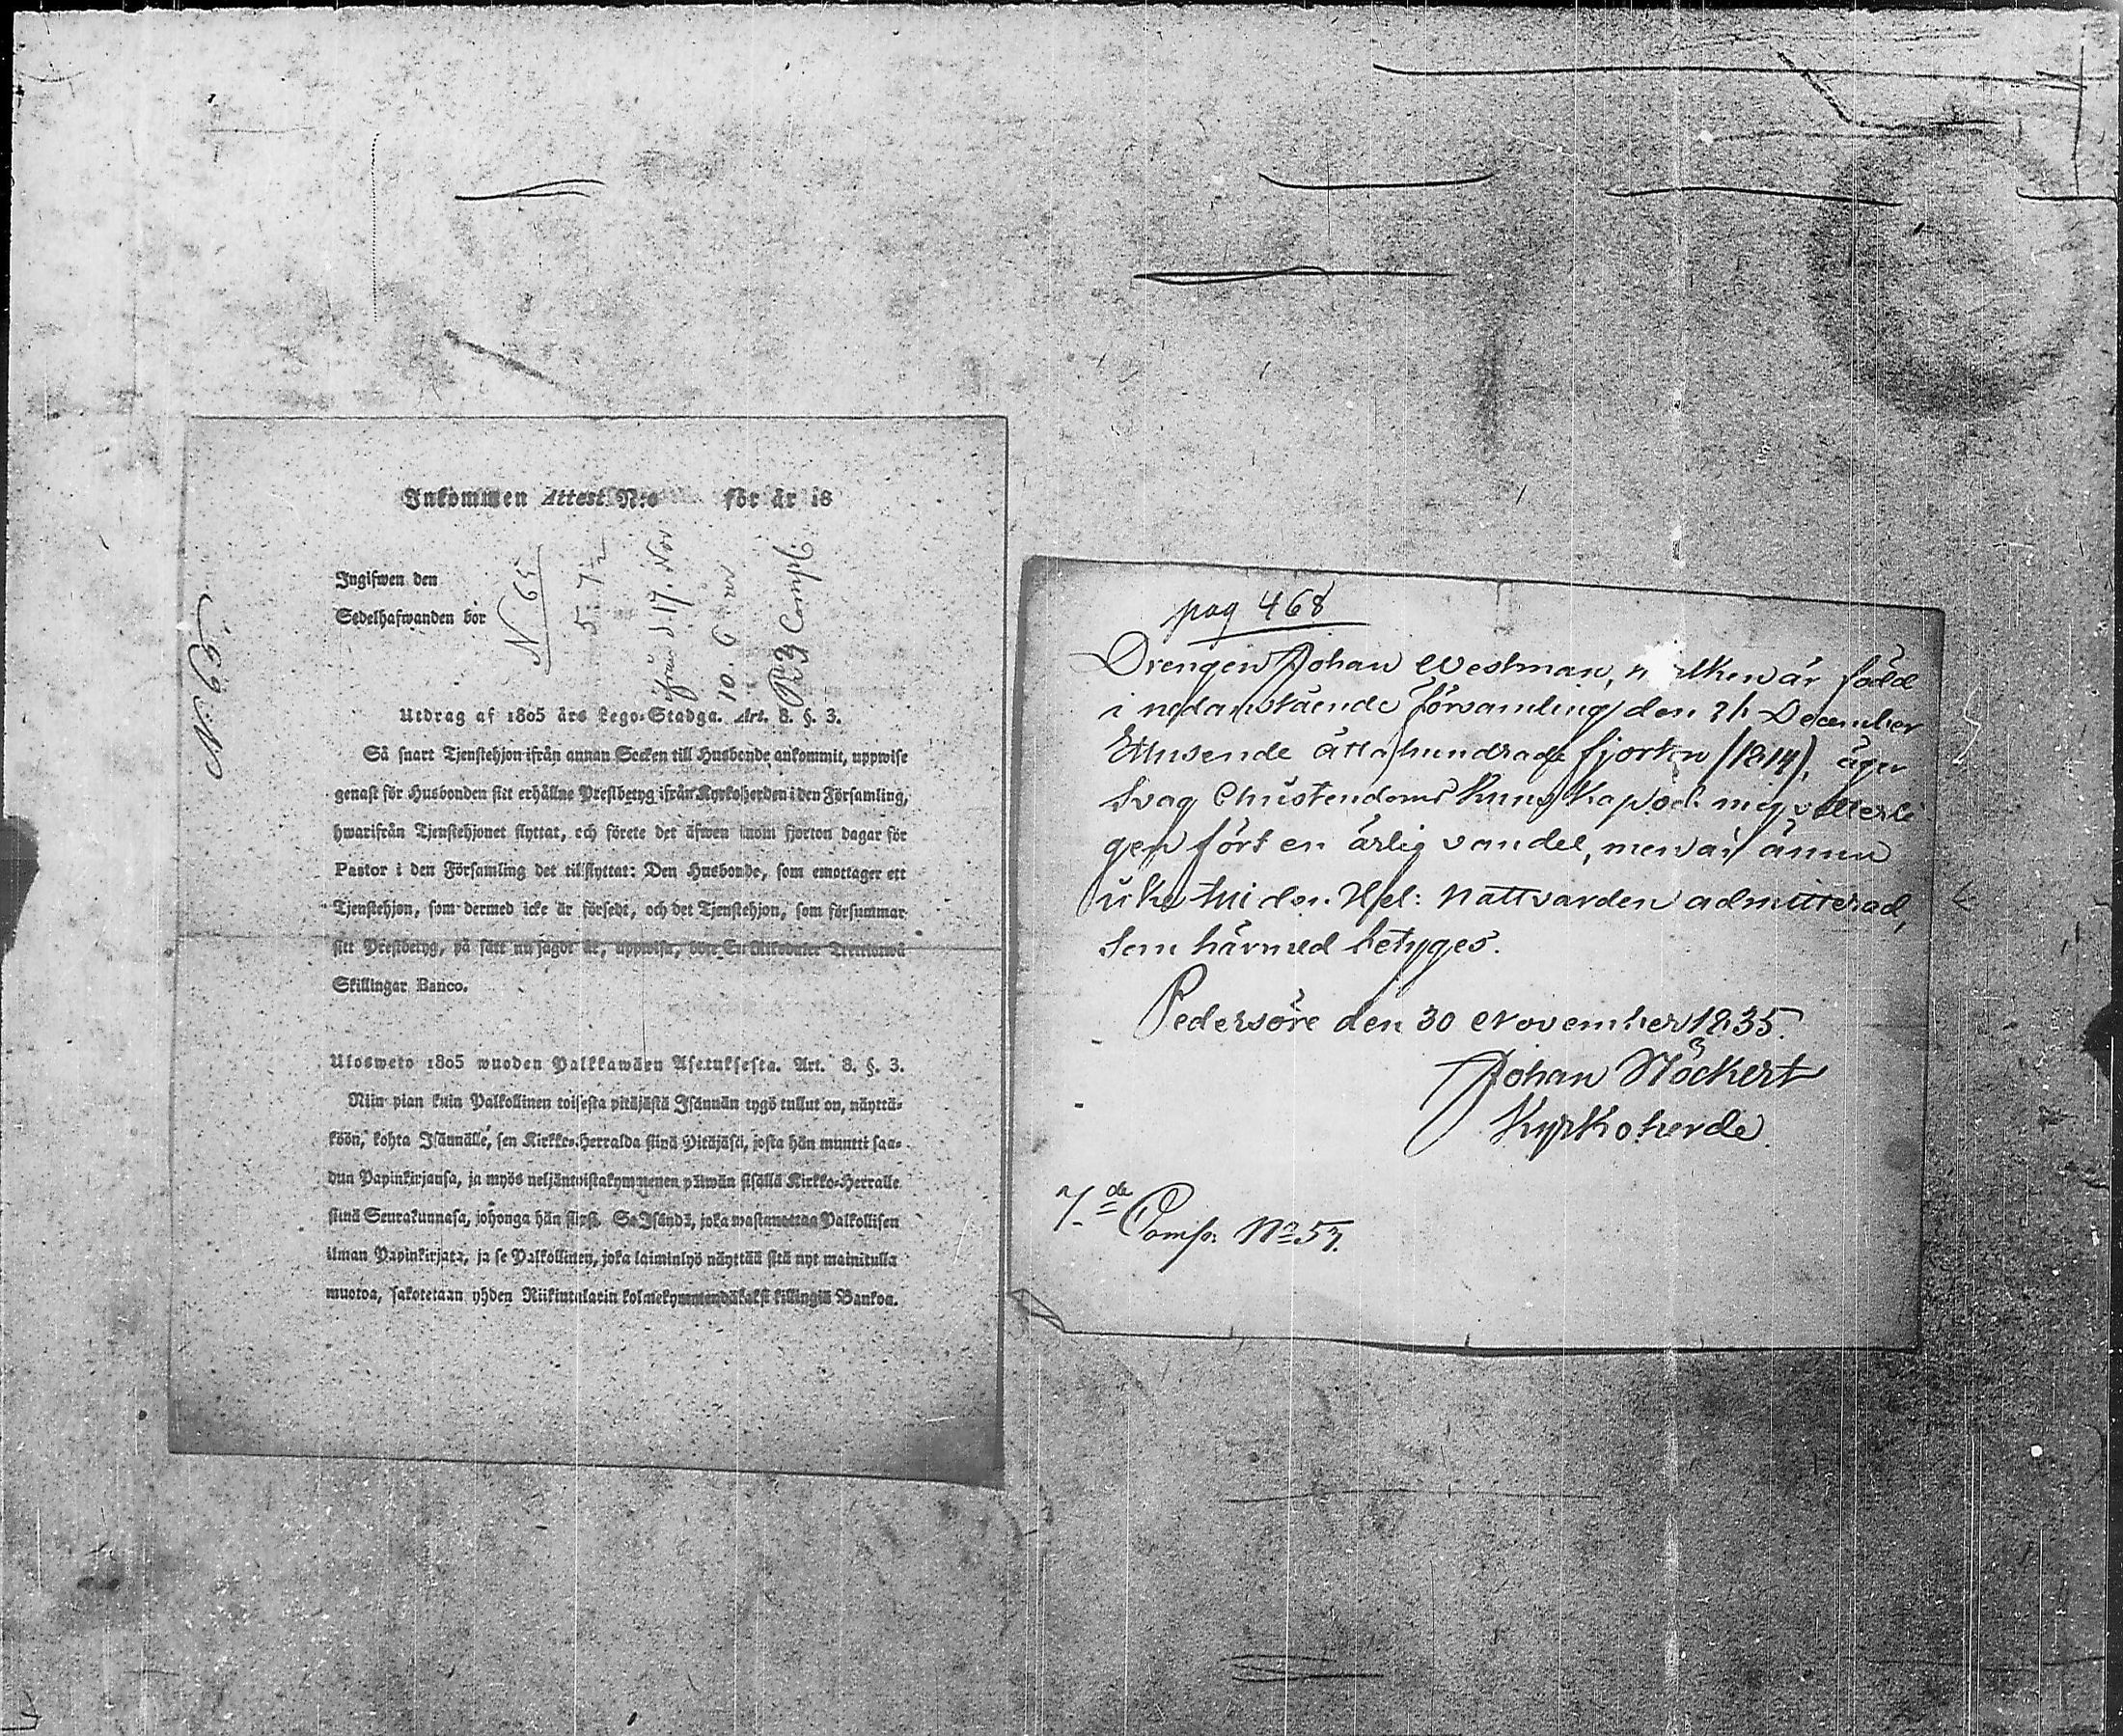 Inkommen Attest N:o för år 18
Ingifwen den
Sedelhafwanden bor
N 65
5. 7½
från d 17. Nov
10. 6
Comp.
Utdrag af 1805 års Lego-Stadga. Art. 8. §. 3.
Så snart Tjenstehjon ifrån annan Socken till Husbonde ankommit, uppwise
genast för Husbonden sitt erhållne Prestbetyg ifrån Kyrkoherden i den Församling,
hwarifrån Tjenstehjonet flyttat, och förete det äfwen inom fjorton dagar för
Pastor i den Församling det tillflyttat: Den Husbonde, som emottager ett
Tjenstehjon, som dermed icke är försedt, och det Tjenstehjon, som försummar
sitt Prestbetyg, på sätt nu sagdt är, uppwisa, böte En Riksdaler Trettiotwå
Skillingar Banco.
Ulosweto 1805 wuoden Palkkawäen Asetuksesta. Art. 8. §. 3.
Niin pian kuin Palkollinen toisesta pitäjästä Isännän tygö tullut on, näyttä-
köön, kohta Isännälle, sen Kirkko-Herralda siinä Pitäjäsä, josta hän muutti saa-
dun Papinkirjansa, ja myös neljäntoistakymmenen päiwän sisällä Kirkko-Herralle
siinä Seurakunnasa, johonga hän siirsi. Se Isändä, joka wastanottaa Palkollisen
ilman Papinkirjata, ja se Palkollinen, joka laiminlyö näyttää sitä nyt mainitulla
muotoa, sakotetaan yhden Riikintalarin kolmekymmendäkaksi killingiä Bankoa.
pag 468
Drengen Johan Westman, hvilken är född
i nedanstående Församling den 21 December
Ettusende åttahundrade fjorton (1814), äger
svag Christendoms Kunskap och mig vetterli
gen fört en ärlig vandel, men är ännu
icke till den H. el: Nattvarden admitterad,
som härmed betyges.
Pedersöre den 30 November 1835.
Johan Stöckert
Kyrkoherde
7de Comp. No 57.